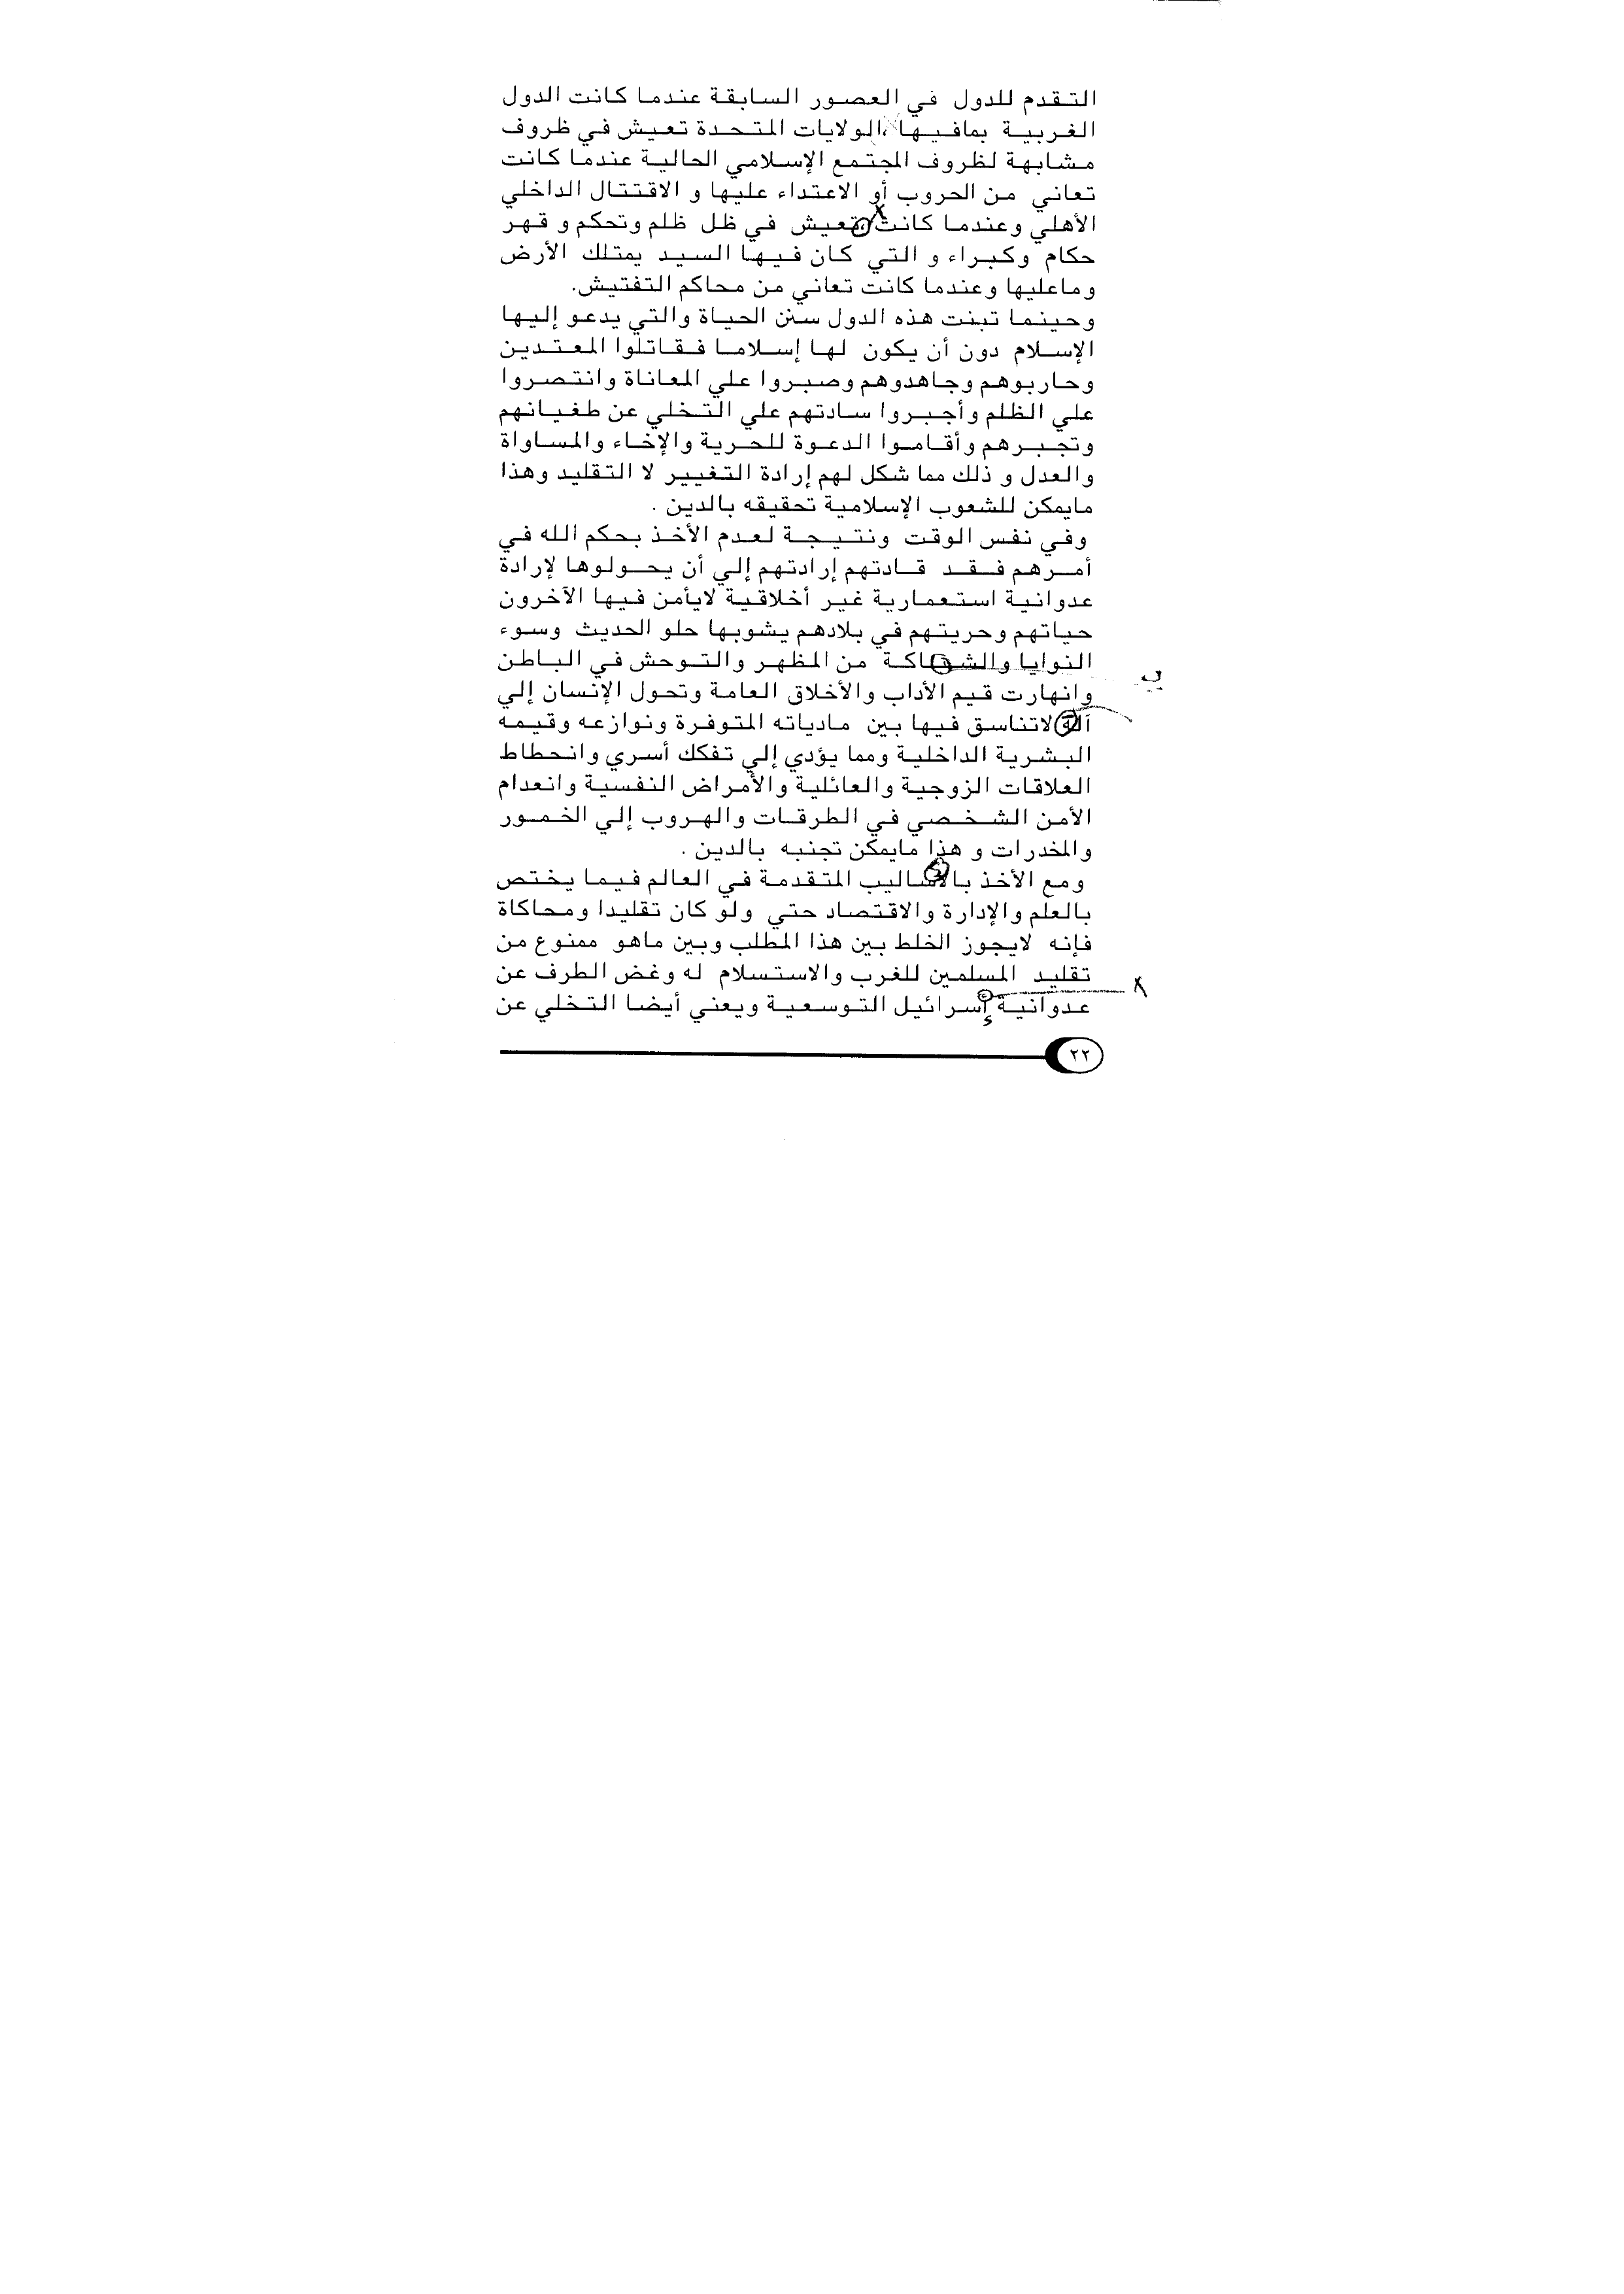 التقدم للدول في العصور السابقة عندما كانت الدول
الغربية بمافيها الولايات المتحدة تعيش في ظروف
مشابهة لظروف المجتمع الإسلامي الحالية عندما كانت
تعاني من الحروب أو الاعتداء عليها و الاقتتال الداخلي
الأهلي وعندما كانت تعيش في ظل ظلم وتحكم و قهر
حكام وكبراء و التي كان فيها السيد يمتلك الأرض
وماعليها وعندما كانت تعاني من محاكم التفتيش.
وحينما تبنت هذه الدول سنن الحياة والتي يدعو إليها
الإسلام دون أن يكون لها إسلاما فقاتلوا المعتدين
وحاربوهم وجاهدوهم وصبروا علي المعاناة وانتصروا
علي الظلم وأجبروا سادتهم علي التخلي عن طغيانهم
وتجبرهم وأقاموا الدعوة للحرية والإخاء والمساواة
والعدل و ذلك مما شكل لهم إرادة التغيير لا التقليد وهذا
مايمكن للشعوب الإسلامية تحقيقه بالدين .
وفي نفس الوقت ونتيجة لعدم الأخذ بحكم الله في
أمرهم فقد قادتهم إرادتهم إلي أن يحولوها لإرادة
عدوانية استعمارية غير أخلاقية لايأمن فيها الآخرون
حياتهم وحريتهم في بلادهم يشوبها حلو الحديث وسوء
النوايا من المظهر والتوحش في الباطن
وانهارت قيم الأداب والأخلاق العامة وتحول الإنسان إلي
آلة لاتناسق فيها بين مادياته المتوفرة ونوازعه وقيمه
البشرية الداخلية ومما يؤدي إلي تفكك أسري وانحطاط
العلاقات الزوجية والعائلية والأمراض النفسية وانعدام
الأمن الشخصي في الطرقات والهروب إلي الخمور
والمخدرات و هذا مايمكن تجنبه بالدين .
ومع الأخذ بالأساليب المتقدمة في العالم فيما يختص
بالعلم والإدارة والاقتصاد حتي ولو كان تقليدا ومحاكاة
فإنه لايجوز الخلط بين هذا المطلب وبين ماهو ممنوع من
تقليد المسلمين للغرب والاستسلام له وغض الطرف عن
عدوانية إسرائيل التوسعية ويعني أيضا التخلي عن
٢٢